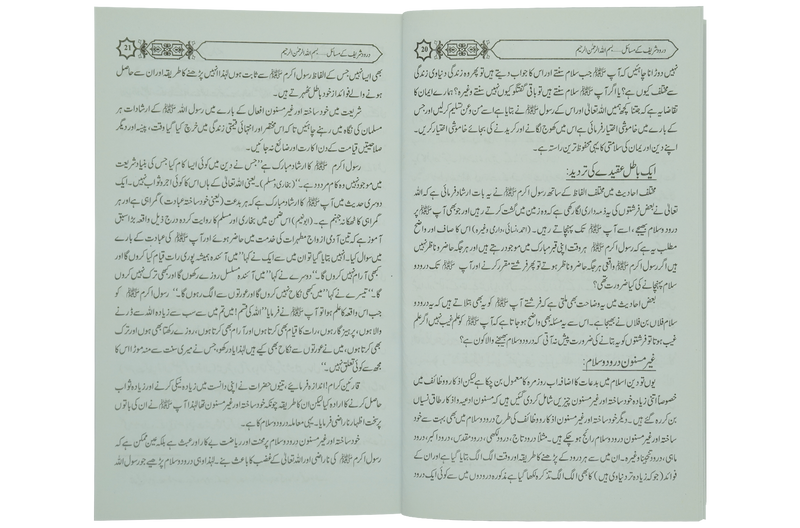 درود شریف کے مسائل.... بسم اللہ الرحمن الرحیم
20
نہیں دوڑانا چاہئیں کہ آپ ﷺ جب سلام سنتے اور اس کا جواب دیتے ہیں تو پھر وہ زندگی دنیاوی زندگی
سے مختلف کیوں ہے؟ یا اگر آپ ﷺ سلام سنتے ہیں تو باقی گفتگو کیوں نہیں سنتے وغیرہ؟ ہمارے ایمان کا
تقاضا یہ ہے کہ جتنا کچھ ہمیں اللہ تعالیٰ اور اس کے رسول ﷺ نے بتایا ہے اسے من و عن تسلیم کر لیں اور جس
کے بارے میں خاموشی اختیار فرمائی ہے اس میں کھوج لگانے اور کریدنے کی بجائے خاموشی اختیار کریں۔
اپنے دین اور ایمان کی سلامتی کا یہی محفوظ ترین راستہ ہے۔
ایک باطل عقیدے کی تردید:
مختلف احادیث میں مختلف الفاظ کے ساتھ رسول اکرم ﷺ نے یہ بات ارشاد فرمائی ہے کہ اللہ
تعالیٰ نے بعض فرشتوں کی یہ ذمہ داری لگا رکھی ہے کہ وہ زمین میں گشت کرتے رہیں اور جو بھی آپ ﷺ پر
درود سلام بھیجے، اسے آپ ﷺ تک پہنچاتے رہیں۔ (احمد، نسائی، دارمی وغیرہ) اس کا صاف اور واضح
مطلب یہ ہے کہ رسول اکرم ﷺ ہر وقت اپنی قبر مبارک میں موجود رہتے ہیں اور ہر جگہ حاضر و ناظر نہیں
ہیں اگر رسول اکرم ﷺ واقعی ہر جگہ حاضر و ناظر ہوتے تو پھر فرشتے مقرر کرنے اور آپ ﷺ تک درود و
سلام پہنچانے کی کیا ضرورت تھی؟
بعض احادیث میں یہ وضاحت بھی ملتی ہے کہ فرشتے آپ ﷺ کو یہ بھی بتلاتے ہیں کہ یہ درود
سلام فلاں بن فلاں نے بھیجا ہے۔ اس سے یہ مسئلہ بھی واضح ہو جاتا ہے کہ آپ ﷺ کو علم غیب نہیں اگر علم
غیب ہوتا تو فرشتوں کو یہ بتانے کی ضرورت پیش نہ آتی کہ درود سلام بھیجنے والا کون ہے؟
غیر مسنون درود و سلام:
یوں تو دین اسلام میں بدعات کا اضافہ اب روزمرہ کا معمول بن چکا ہے لیکن اذکار و وظائف میں
خصوصاً اتنی زیادہ خود ساختہ اور غیر مسنون چیزیں شامل کر دی گئیں ہیں کہ مسنون ادعیہ و اذکار طاق نسیاں
بن کر رہ گئے ہیں۔ دیگر خود ساختہ اور غیر مسنون اذکار و وظائف کی طرح درود و سلام میں بھی بہت سے خود
ساختہ اور غیر مسنون درود و سلام رائج ہو چکے ہیں۔ مثلاً درود تاج، درود لکھی، درود مقدس، درود اکبر، درود
ماہی، درود تنجینا وغیرہ۔ ان میں سے ہر درود کے پڑھنے کا طریقہ اور وقت الگ الگ بتایا گیا ہے اور ان کے
فوائد (جو کہ زیادہ تر دنیاوی ہیں) کا بھی الگ الگ تذکرہ لکھا گیا ہے مذکورہ درودوں میں سے کوئی ایک درود
درود شریف کے مسائل.... بسم اللہ الرحمن الرحیم
21
بھی ایسا نہیں جس کے الفاظ رسول اکرم ﷺ سے ثابت ہوں لہٰذا انہیں پڑھنے کا طریقہ اور ان سے حاصل
ہونے والے فوائد از خود باطل ٹھہرتے ہیں۔
شریعت میں خود ساختہ اور غیر مسنون افعال کے بارے میں رسول اللہ ﷺ کے ارشادات ہر
مسلمان کی نگاہ میں رہنے چاہئیں تا کہ اس مختصر اور انتہائی قیمتی زندگی میں خرچ کیا گیا وقت، پیسہ اور دیگر
صلاحیتیں قیامت کے دن اکارت اور ضائع نہ جائیں۔
رسول اکرم ﷺ کا ارشاد مبارک ہے ”جس نے دین میں کوئی ایسا کام کیا جس کی بنیاد شریعت
میں موجود نہیں وہ کام مردود ہے۔“ (بخاری و مسلم) ۔ یعنی اللہ تعالیٰ کے ہاں اس کا کوئی اجر و ثواب نہیں۔ ایک
دوسری حدیث میں آپ ﷺ کا ارشاد مبارک ہے کہ ہر بدعت (یعنی خود ساختہ عبادت) گمراہی ہے اور ہر
گمراہی کا ٹھکانہ جہنم ہے۔ (ابو نعیم) اس ضمن میں بخاری و مسلم کا روایت کردہ درج ذیل واقعہ بڑا سبق
آموز ہے کہ تین آدمی ازواج مطہرات کی خدمت میں حاضر ہوئے اور آپ ﷺ کی عبادت کے بارے
میں سوال کیا۔ انہیں بتایا گیا تو ان میں سے ایک نے کہا ”میں آئندہ ہمیشہ پوری رات قیام کیا کروں گا اور
کبھی آرام نہیں کروں گا۔“ دوسرے نے کہا ”میں آئندہ مسلسل روزے رکھوں گا اور کبھی ترک نہیں کروں
گا۔“ تیسرے نے کہا ”میں کبھی نکاح نہیں کروں گا اور عورتوں سے الگ رہوں گا۔“ رسول اکرم ﷺ کو
جب اس واقعہ کا علم ہوا تو آپ ﷺ نے فرمایا ”اللہ کی قسم! میں تم میں سب سے زیادہ اللہ سے ڈرنے
والا ہوں، پرہیزگار ہوں، رات کا قیام بھی کرتا ہوں اور آرام بھی کرتا ہوں، روزے رکھتا بھی ہوں اور ترک
بھی کرتا ہوں، میں نے عورتوں سے نکاح بھی کیے ہیں لہٰذا یاد رکھو، جس نے میری سنت سے منہ موڑا اس کا
مجھ سے کوئی تعلق نہیں۔“
قارئین کرام! اندازہ فرمائیے، تینوں حضرات نے اپنی دانست میں زیادہ نیکی کرنے اور زیادہ ثواب
حاصل کرنے کا ارادہ کیا لیکن ان کا طریقہ چونکہ خود ساختہ اور غیر مسنون تھا لہٰذا آپ ﷺ نے ان کی باتوں
پر سخت اظہار ناراضی فرمایا۔ یہی معاملہ درود و سلام کا ہے۔
خود ساختہ اور غیر مسنون درود و سلام پر محنت اور ریاضت بے کار اور عبث ہے بلکہ عین ممکن ہے کہ
رسول اکرم ﷺ کی ناراضی اور اللہ تعالیٰ کے غضب کا باعث بنے۔ لہٰذا وہی درود و سلام پڑھیے جو رسول اللہ